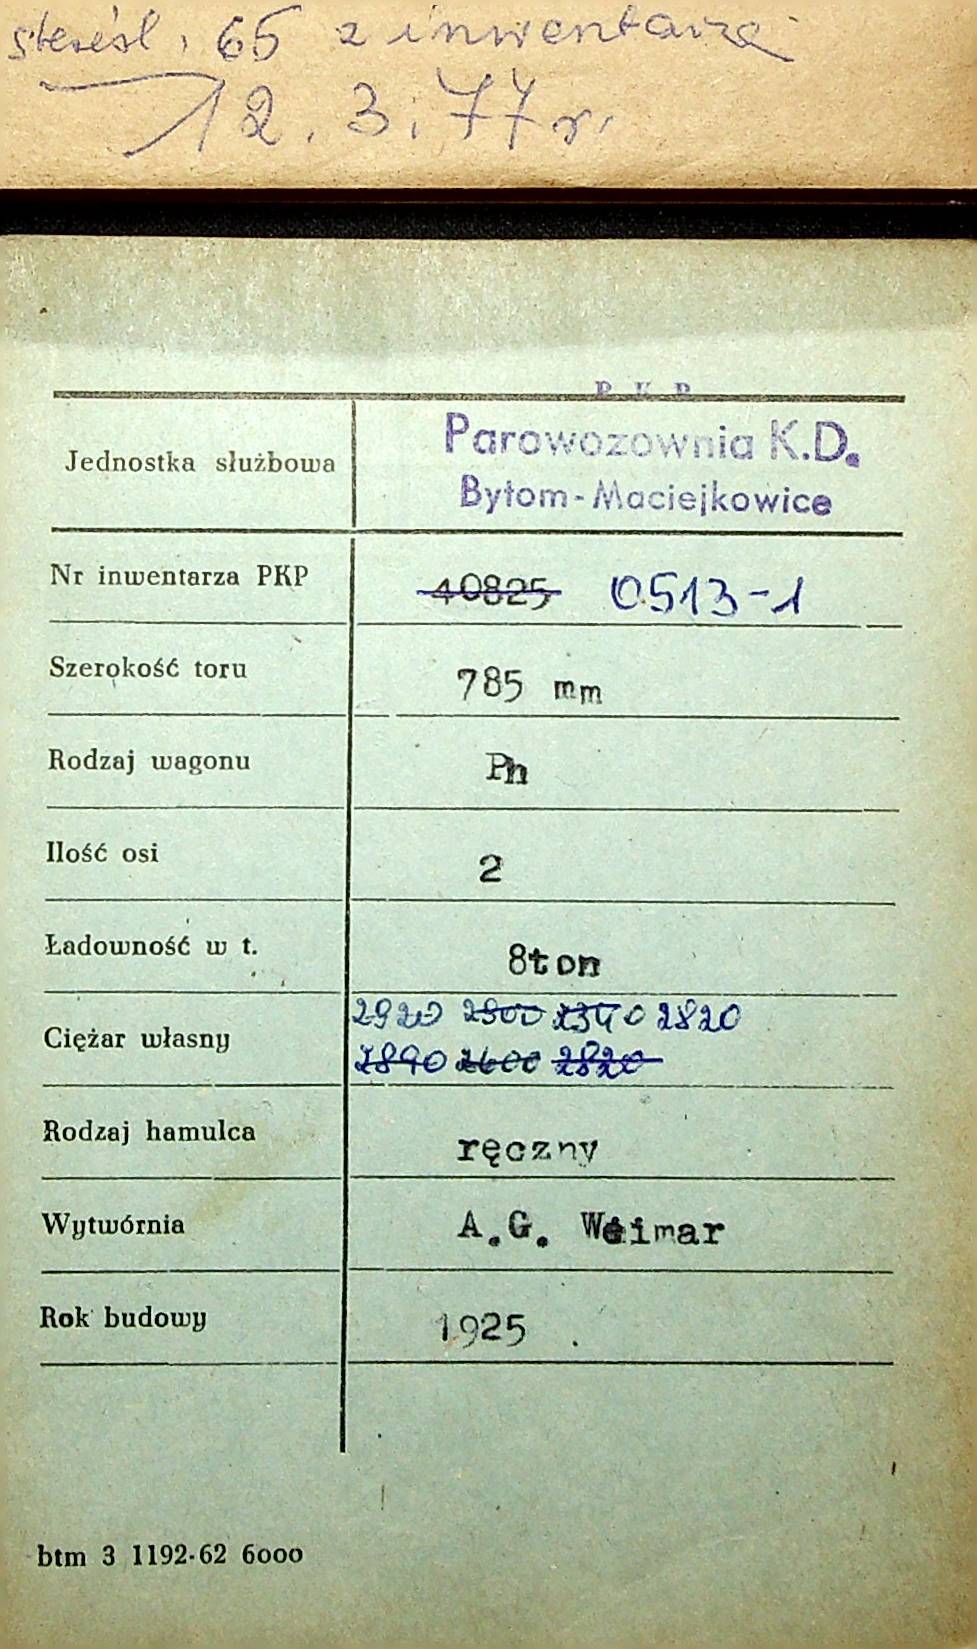 65 z inwentarza
12.3.77 r.
P K P
Parowozownia K.D.
Jednostka służbowa
Bytom-Maciejkowice
Nr inwentarza PKP 40825 0513-1
Szerokość toru 785 mm
Rodzaj wagonu Ph
Ilość osi 2
Ładowność w t. 8ton
2920 2820
Ciężar własny
2890 2600 2820
Rodzaj hamulca ręczny
Wytwórnia A.G. Weimar
Rok budowy 1925
btm 3 1192-62 6000